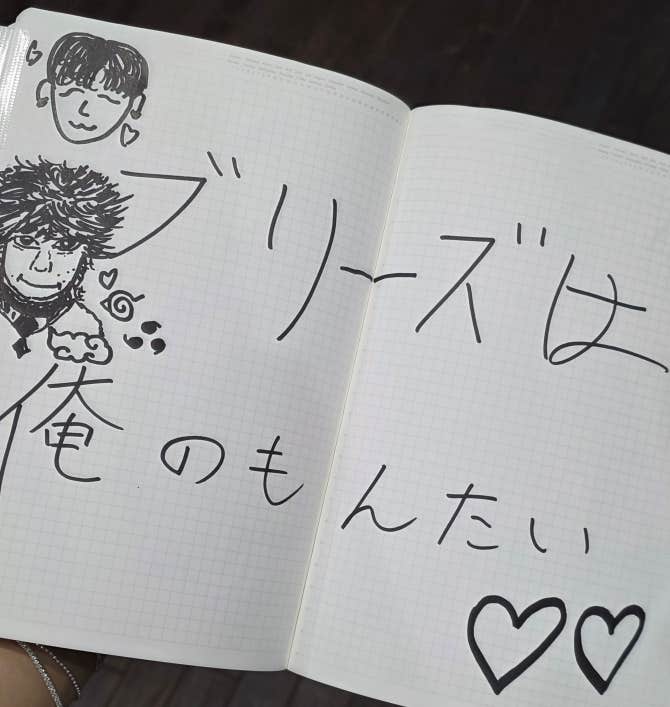 G
ブリーズは
俺のもんたい